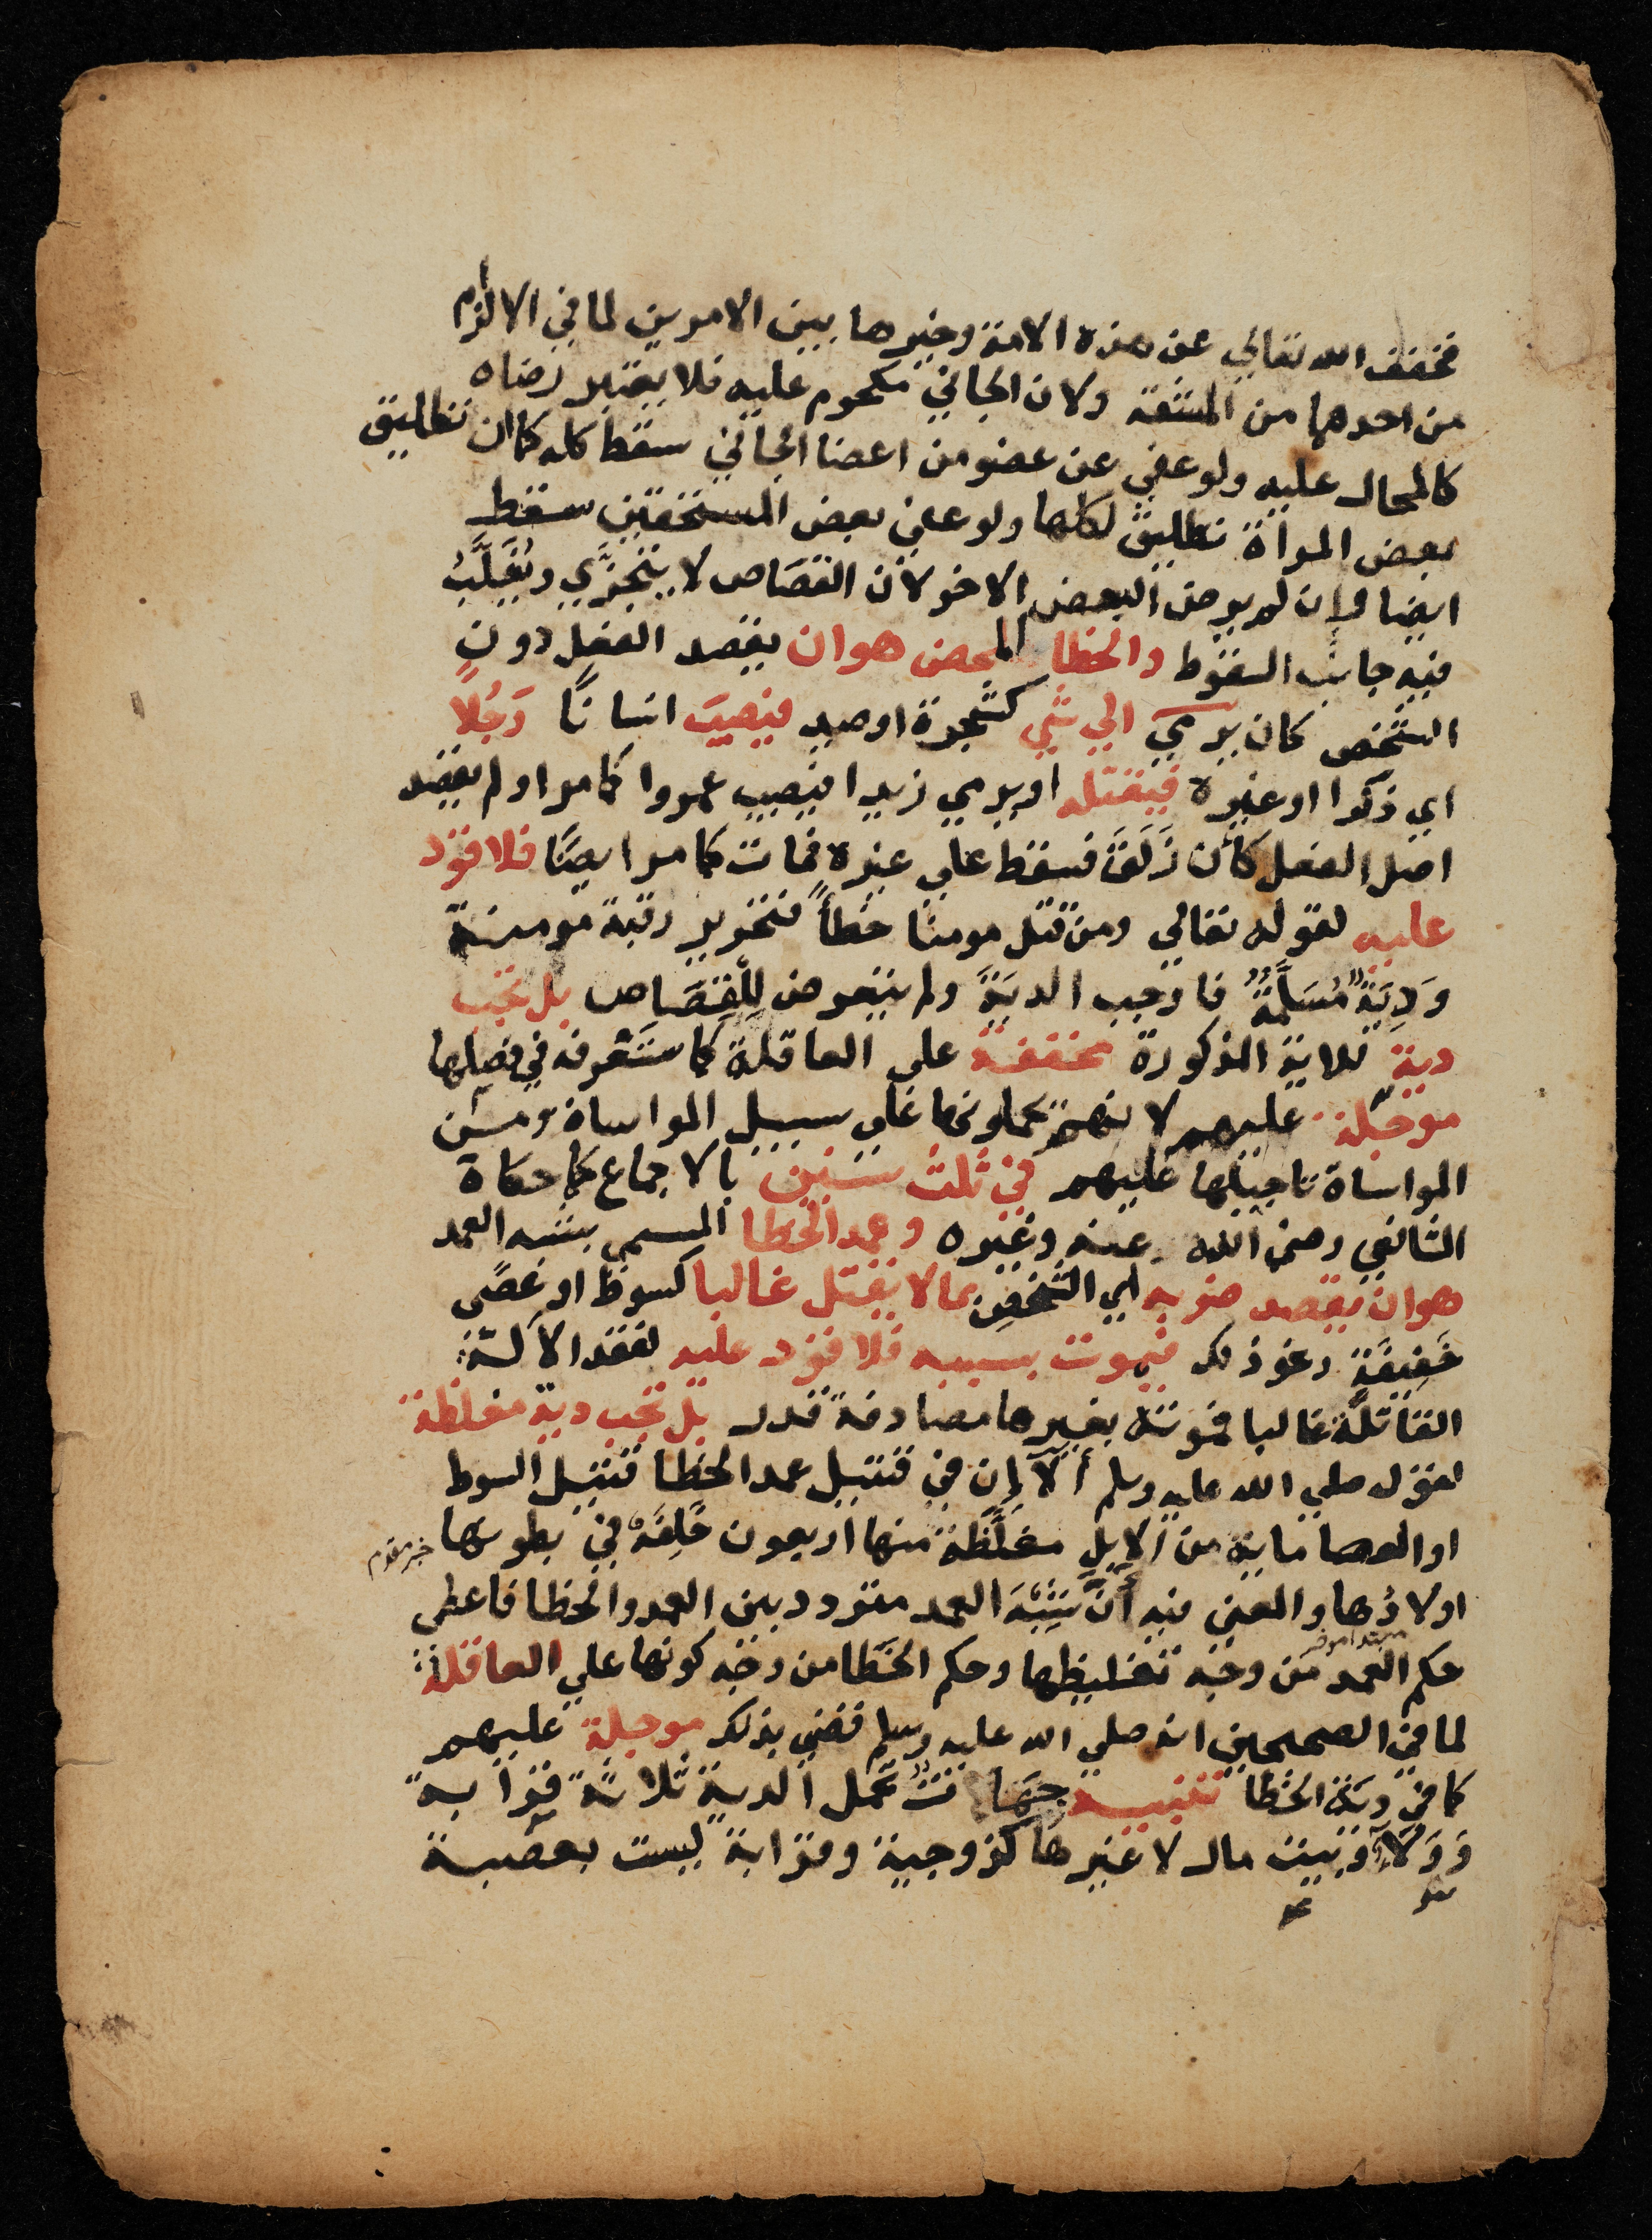 فخفف الله تعالي عن هذه الامة وخيرها بين الامرين لما في الالزام
من احدهما من المشقة ولان الجاني محكوم عليه فلا يعتبر رضاه
كالمحال عليه ولو عفي عن عضو من اعضا الجاني سقط كله كما ان تطليق
بعض المرأة تطليق لكلها ولو عفي بعض المستحقين سقط
ايضا وإن لم يرض البعض الاخر لان القصَاص لا يتجزَّي ويُغَلَّبُ
فيه جانب السقوط والخطا المحض هو ان يقصد الفعل دون
الشخص كان يرمي الي شي كشجرة او صيد فيصيبَ انسانًا رَجُلاً
اي ذكرا او غيره فيقتله او يرمي زيدا فيصيب عمروا كما مر او لم يقصد
اصل الفعل كأن زَلَقَ فسقط علي غيره فمات كما مر ايضًا فلا قود
عليه لقوله تعالي ومن قتل مومنا خطأً فتحرير رقبة مومنة
وَدِيَةٌ مُسَلَّمَةٌ فاوجب الديَةَ ولم يتعرض لِلْقِصَاص بل تجب
دية للاية المذكورة مخففة علي العاقلة كما ستعرفه في فصلها
موجّلة عليهم لانهم يحملونها علي سبيل المواساة ومن
المواساة تاجيلها عليهم في ثلث سنين بالاجماع كما حكاه
الشافعي رضي الله عنه وغيره وعمد الخطا المسمي بشبه العمد
هو ان يقصد ضربه اي الشخصِ بما لا يقتل غالبا كسوط او عَصًى
خَفِيفَةٍ ونحو ذلك فيموت بسببه فلا قود عليه لفقد الآلة
القاتلة غالبا فموته بغيرها مصادفة قدر بل تجب دية مغلظة
لقوله صلي الله عليه وسلم ألاَ إن في قتيل عمد الخطا قتيل السوط
او العصا ماية من الإبل مغلَّظة منها اربعون خَلِفَةً في بطونها خبر مقدم
اولادُها والمعني فيه أنَّ شِبْهَ العمد متردد بين العمد والخطا فاعطي
مبتدا موخر
حكم العمد من وجه تغليظها وحكم الخَطَا من وجه كونها علي العاقلة
لما في الصحيحين انه صلي الله عليه وسلم قضي بذلك موجلة عليهم
كما في ديَة الخطا تنبيه جهَات تحمل الدية ثلاثة قرابة
وَوَلاَءٌ وبيت مال لا غيرها كزوجية وقرابة ليست بعصبة